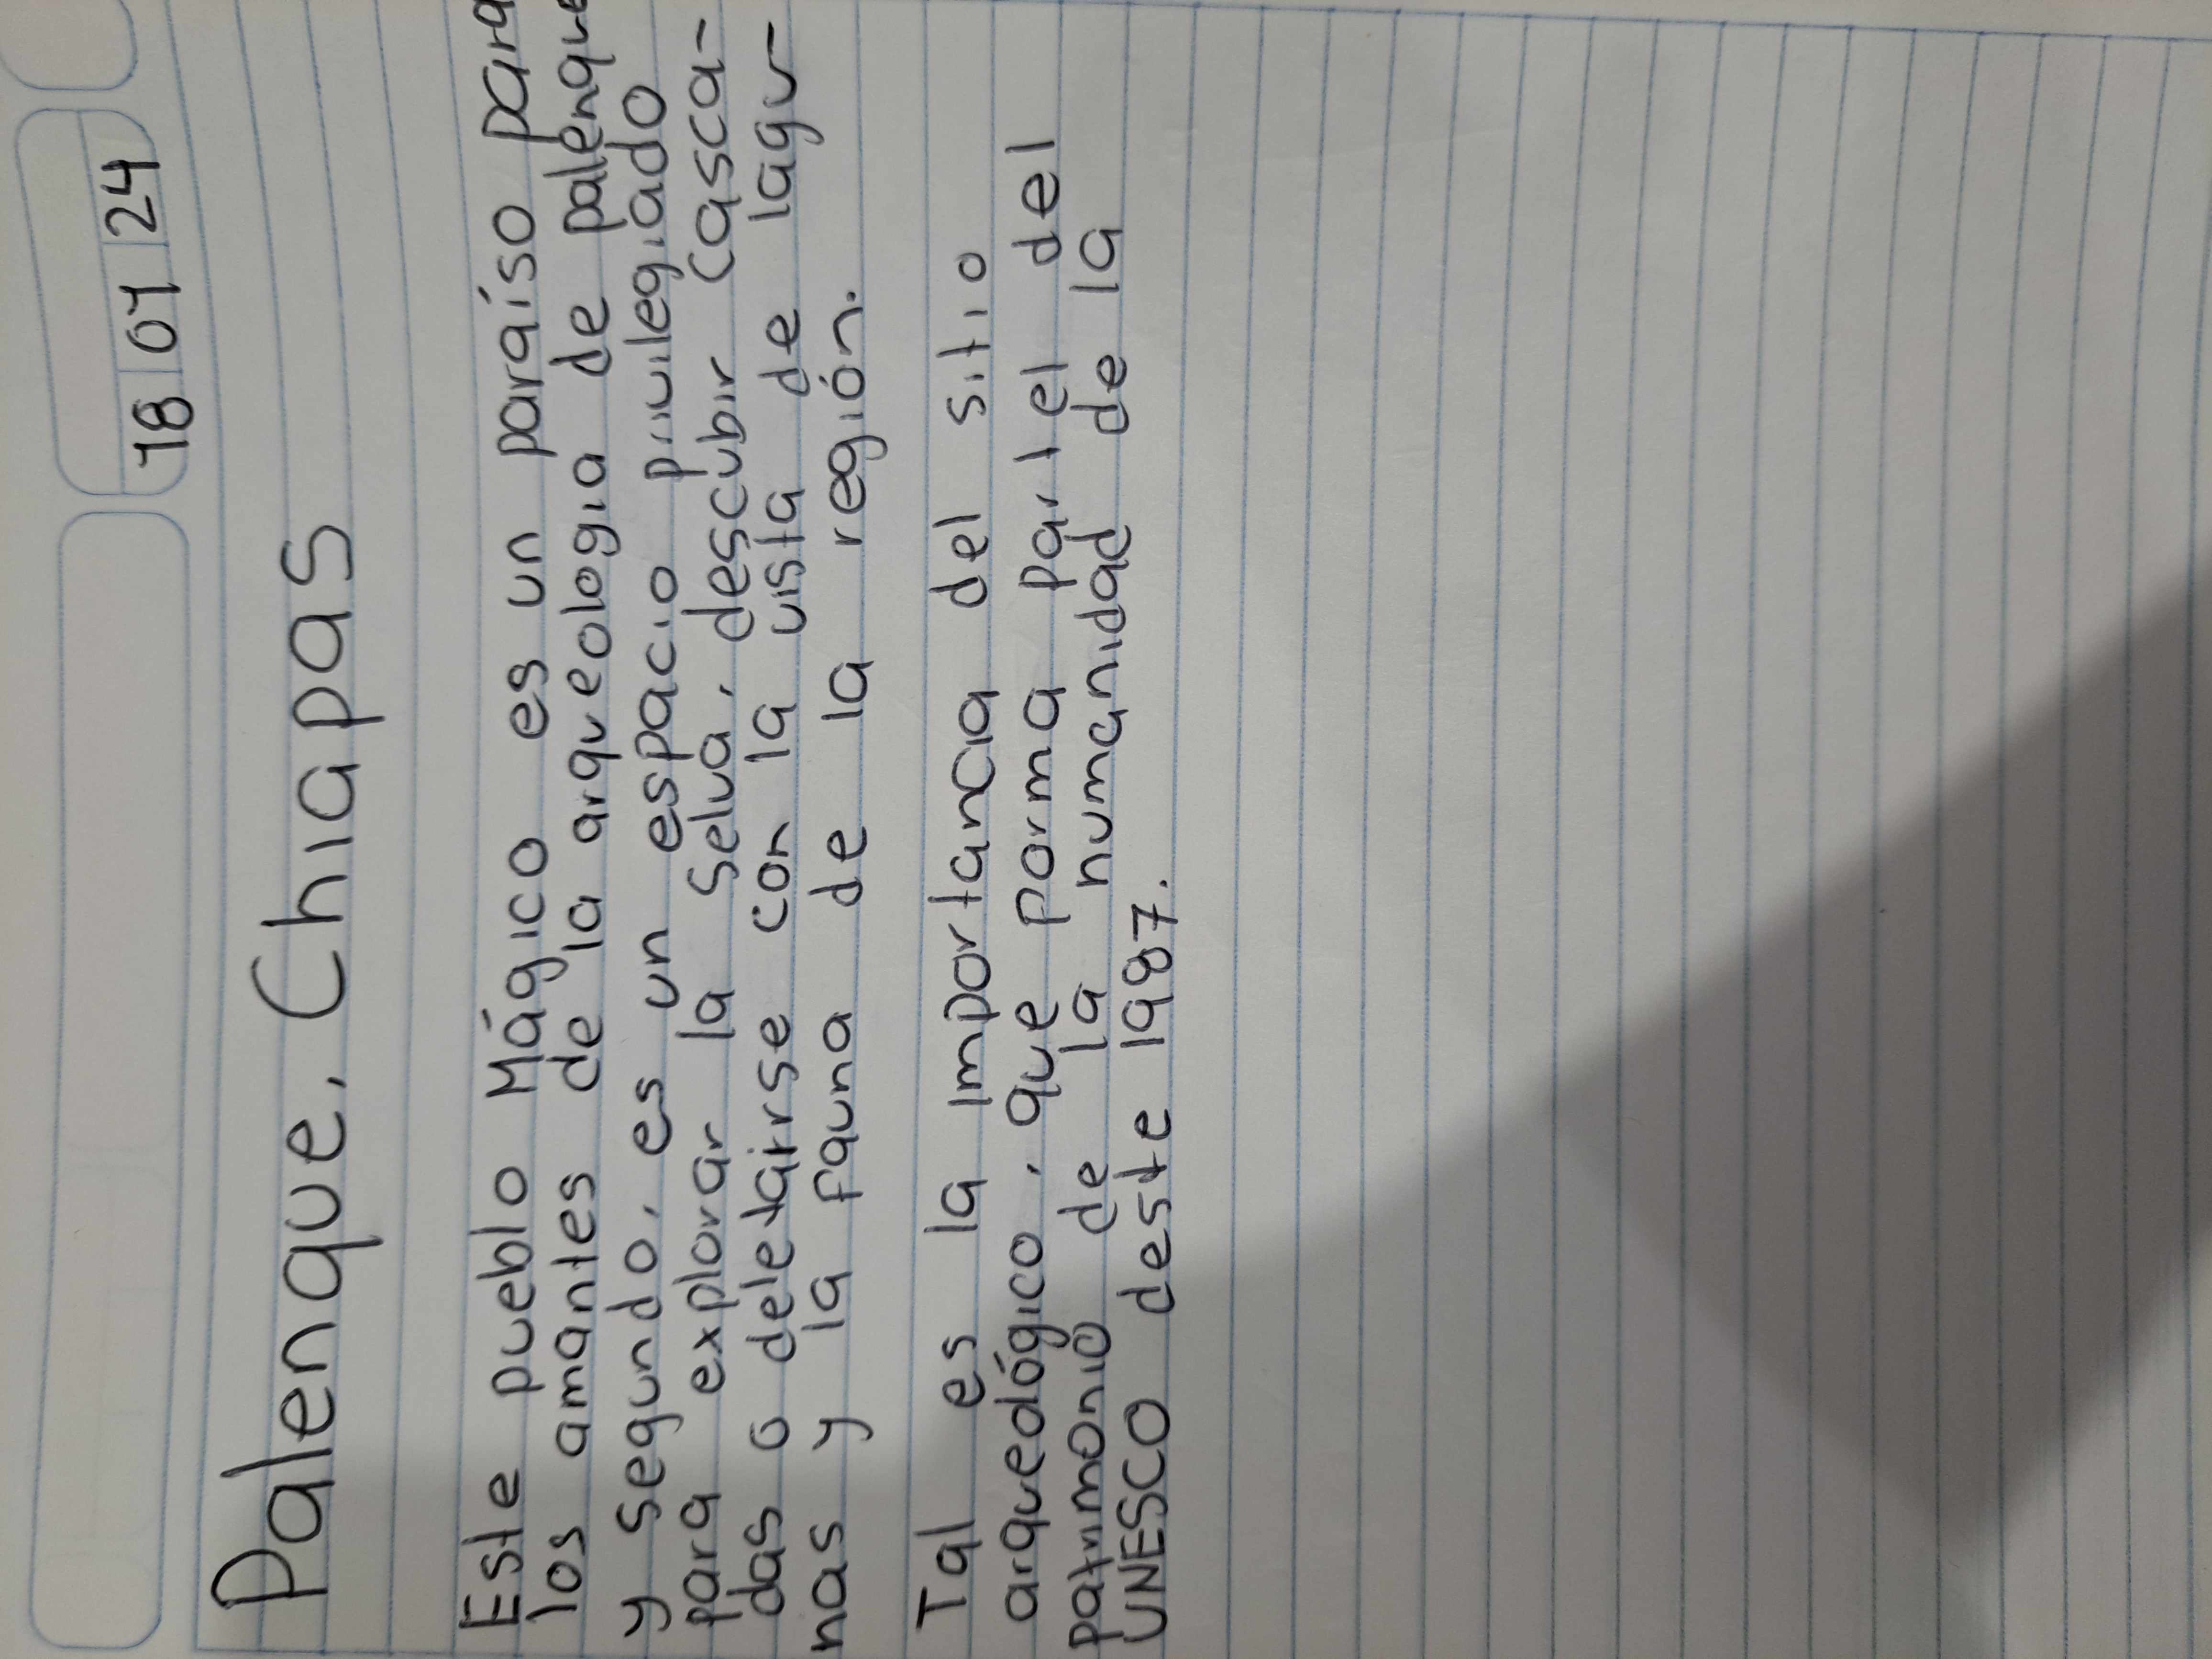 18 07 24
Palenque, Chiapas
Este pueblo Mágico es un paraíso para
los amantes de la arqueologia de palenque
y segundo, es un espacio privilegiado
para explorar la selva, descubir casca-
das o deletairse con la vista de lagu-
nas y la fauna de la región.
Tal es la importancia del sitio
arquedógico, que porma partel del
patrimonio de la numanidad de la
UNESCO deste 1987.